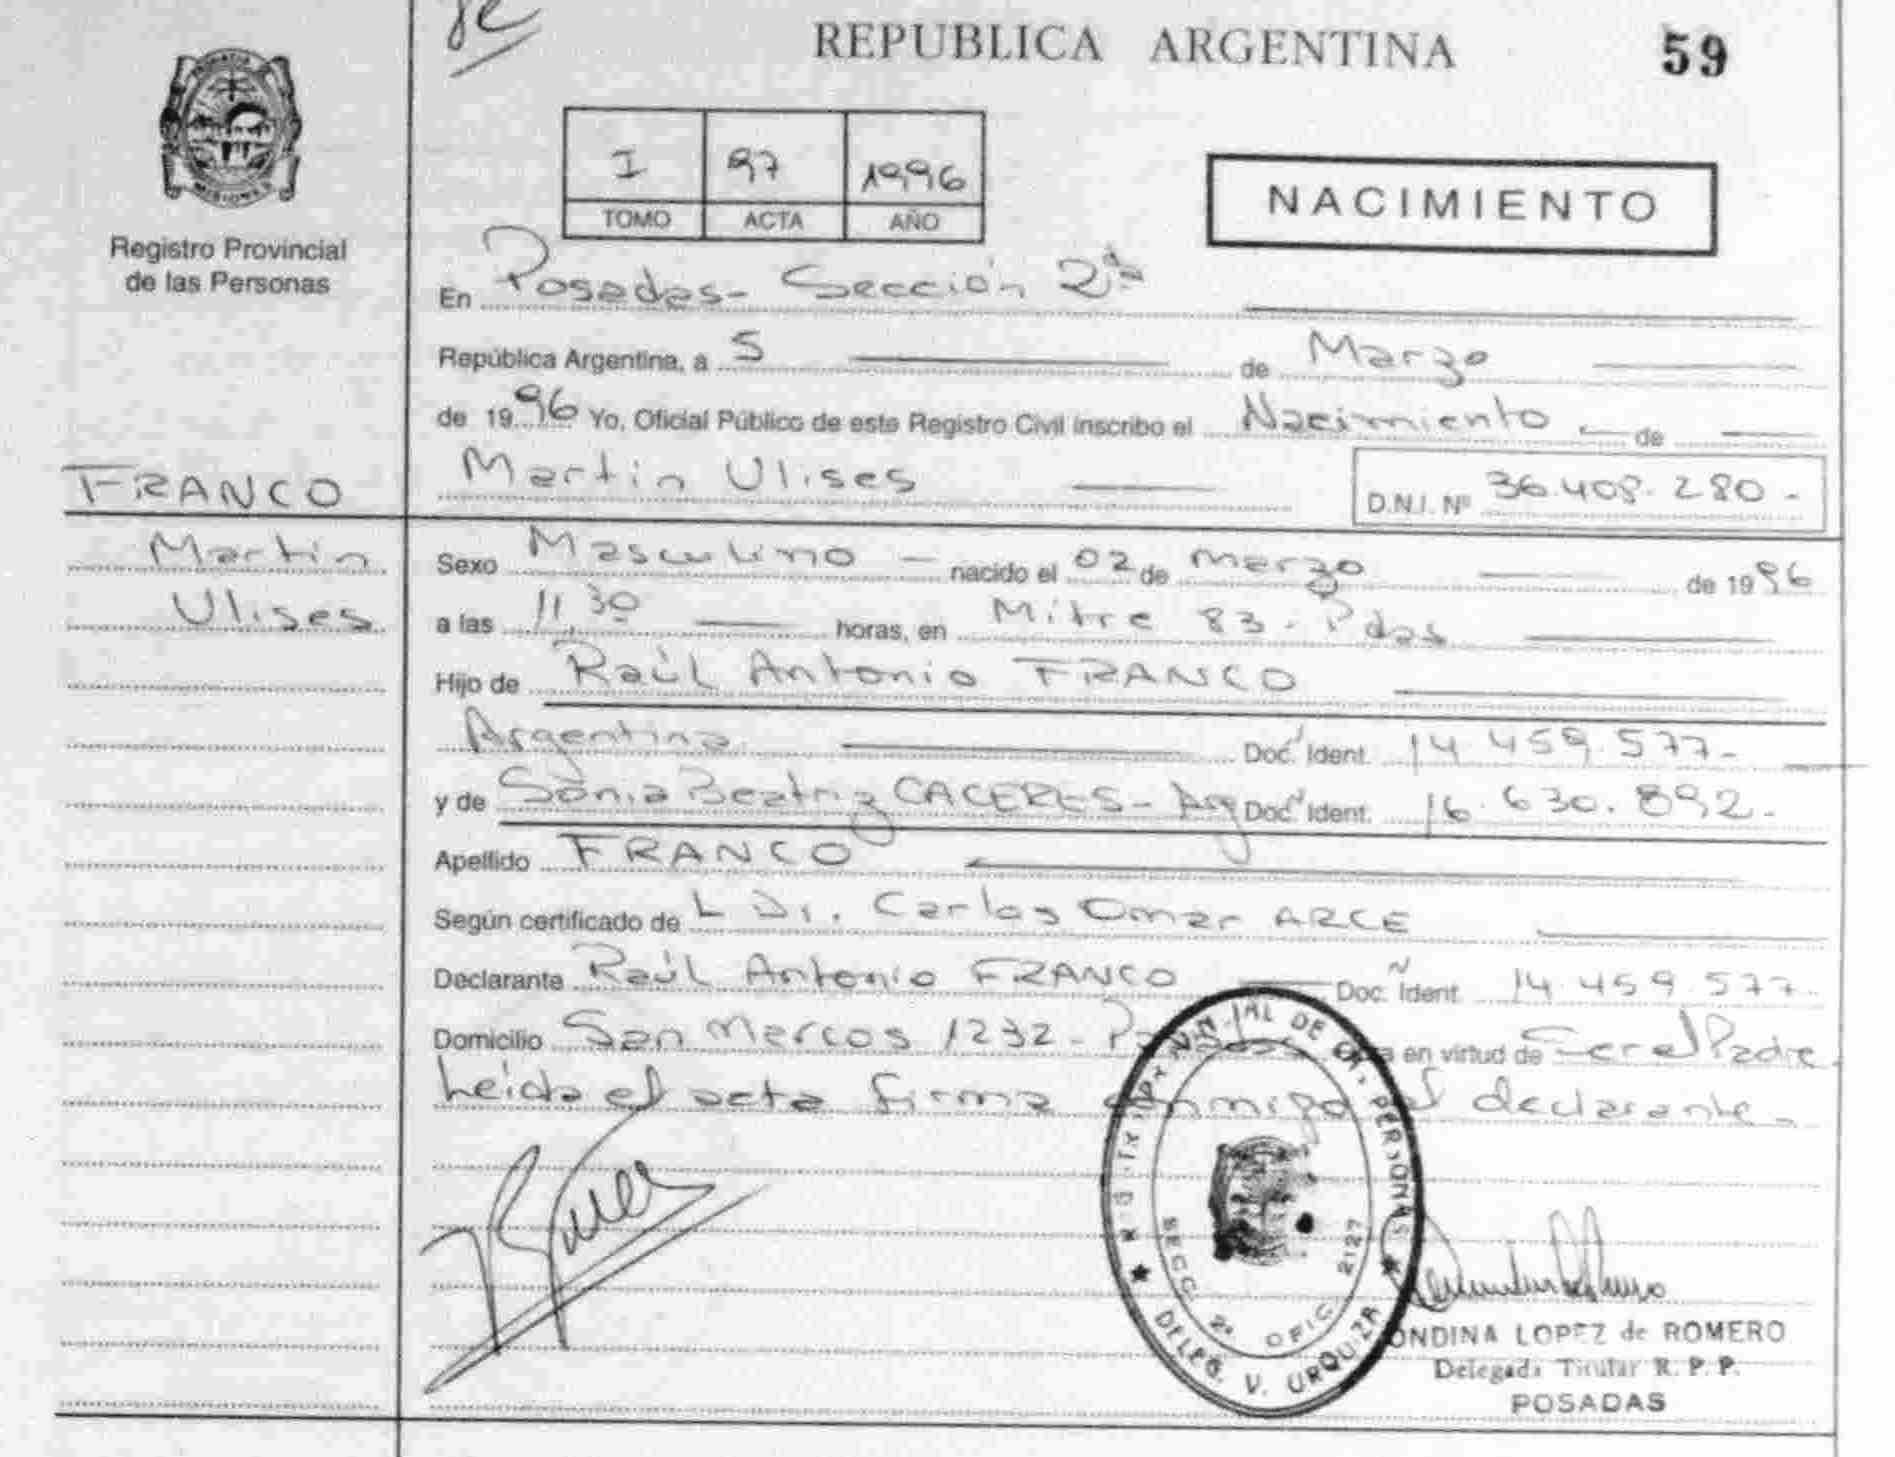 REPUBLICA ARGENTINA 59
MISIONES
Registro Provincial
de las Personas
I 97 1996
TOMO ACTA AÑO
NACIMIENTO
En Posadas- Sección 2ª
República Argentina, a 5 de Marzo
de 1996 Yo, Oficial Público de este Registro Civil inscribo el Nacimiento de
FRANCO Martin Ulises D.N.I. Nº 36.408.280.-
Martin Sexo Masculino nacido el 02 de Marzo de 1996
Ulises a las 11,30 horas, en Mitre 83 - Pdas
Hijo de Raúl Antonio FRANCO
Argentina Doc. Ident. 14.459.577-
y de Sonia Beatriz CACERES- Arg Doc. Ident. 16.630.892.-
Apellido FRANCO
Según certificado de L Dr. Carlos Omar ARCE
Declarante Raúl Antonio FRANCO Doc. Ident. 14.459.577.
Domicilio San Marcos 1232- en virtud de Ser el Padre
Leida el acta firma conmigo el declarante-
DE PERSONAS
SECC. 2ª OFIC. 2127
DELEG. V. URQUIZA
ONDINA LOPEZ de ROMERO
Delegada Titular R. P. P.
POSADAS